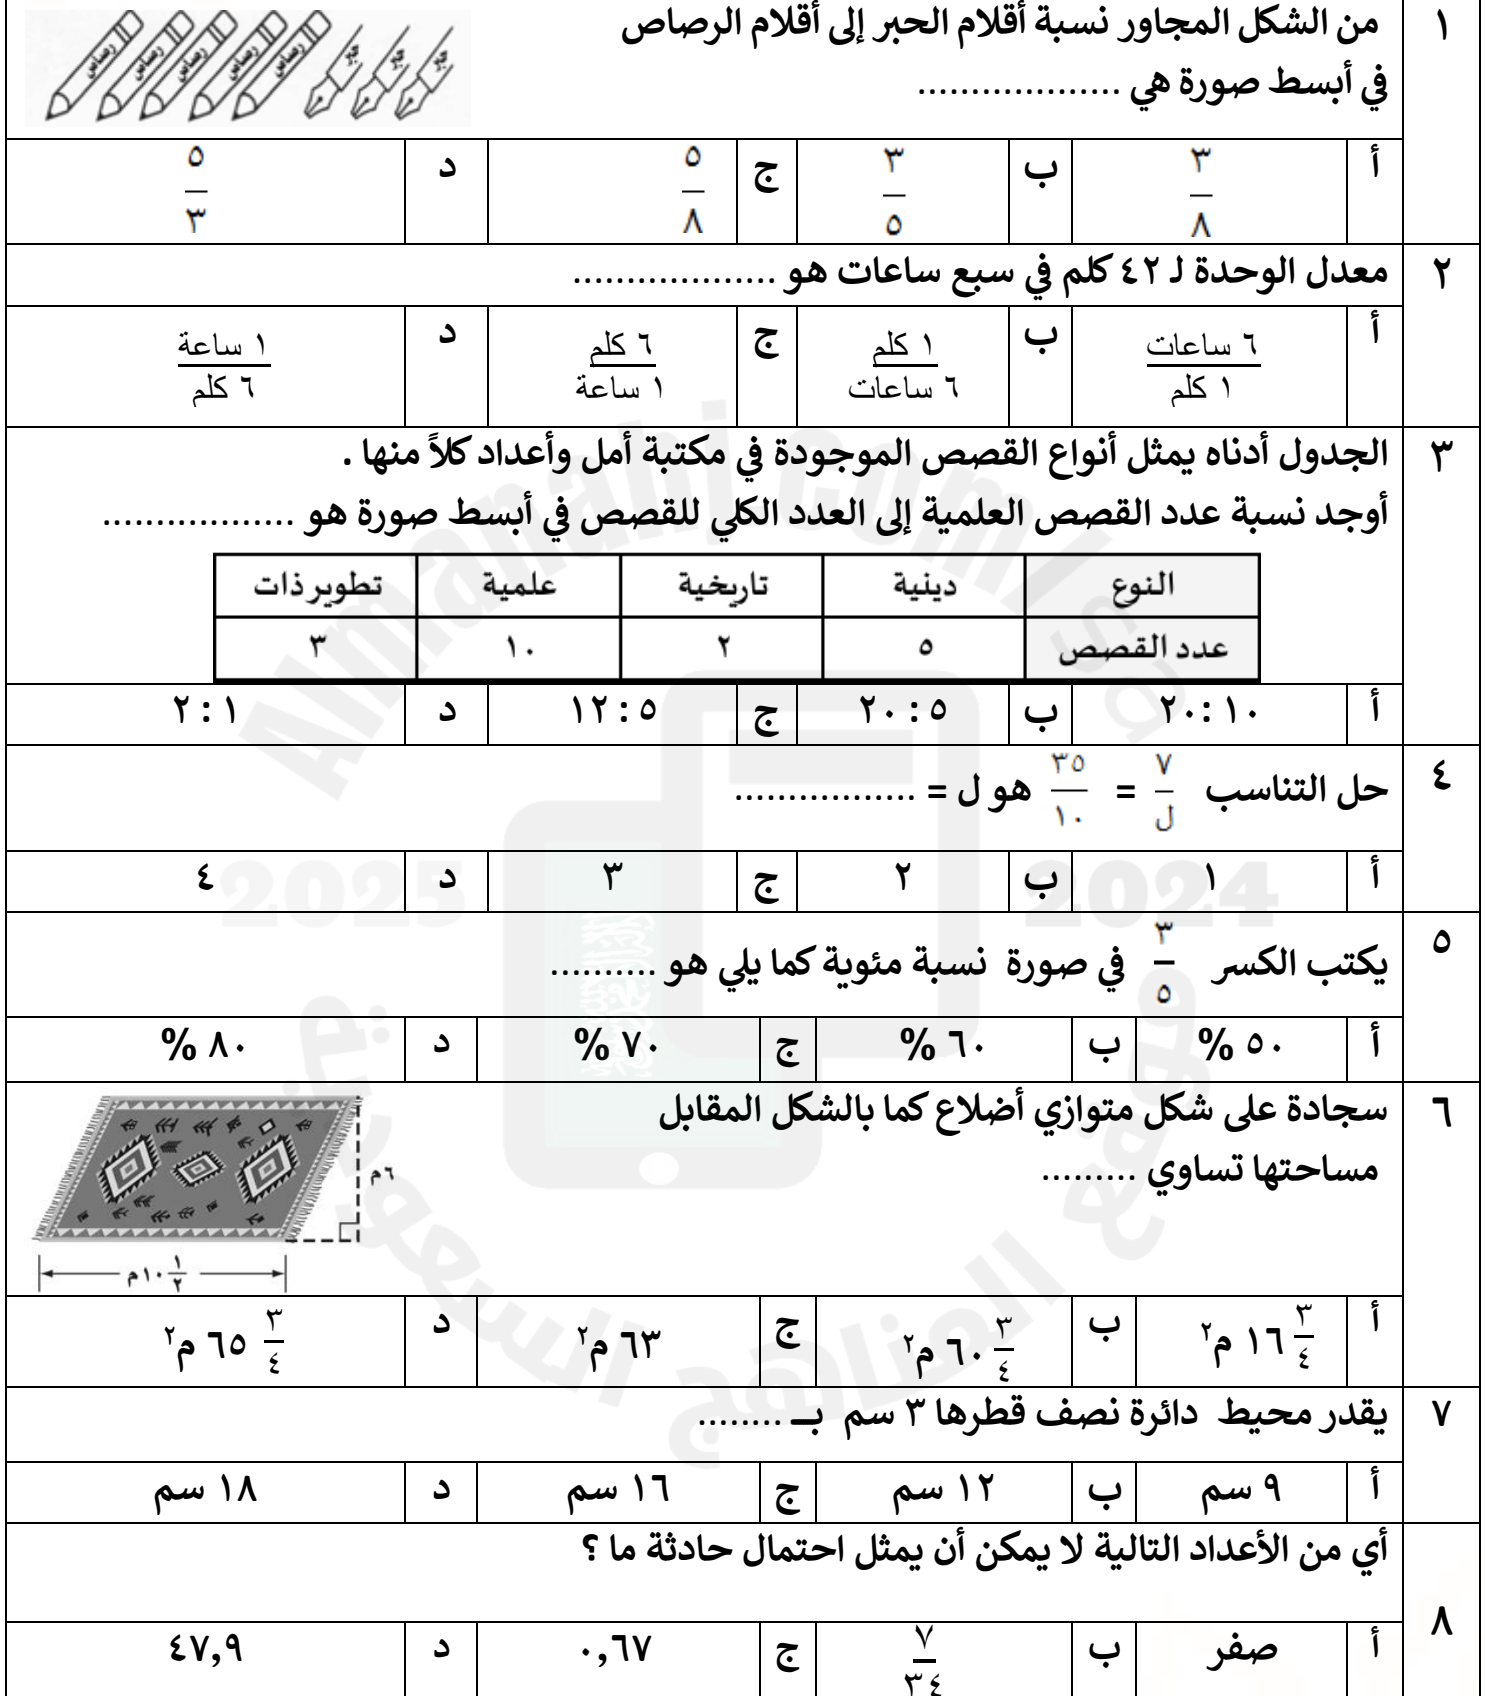 ١ من الشكل المجاور نسبة أقلام الحبر إلى أقلام الرصاص
في أبسط صورة هي ...................
رصاص رصاص رصاص رصاص رصاص حبر حبر حبر
أ ٣/٨ ب ٣/٥ ج ٥/٨ د ٥/٣
٢ معدل الوحدة لـ ٤٢ كلم في سبع ساعات هو ...................
أ ٦ ساعات / ١ كلم ب ١ كلم / ٦ ساعات ج ٦ كلم / ١ ساعة د ١ ساعة / ٦ كلم
٣ الجدول أدناه يمثل أنواع القصص الموجودة في مكتبة أمل وأعداد كلاً منها .
أوجد نسبة عدد القصص العلمية إلى العدد الكلي للقصص في أبسط صورة هو ..................
النوع دينية تاريخية علمية تطوير ذات
عدد القصص ٥ ٢ ١٠ ٣
أ ١٠ :٢٠ ب ٥ : ٢٠ ج ٥ : ١٢ د ١ : ٢
٤ حل التناسب ٧/ل = ٣٥/١٠ هو ل = .................
أ ١ ب ٢ ج ٣ د ٤
٥ يكتب الكسر ٣/٥ في صورة نسبة مئوية كما يلي هو ..........
أ ٥٠ % ب ٦٠ % ج ٧٠ % د ٨٠ %
٦ سجادة على شكل متوازي أضلاع كما بالشكل المقابل
مساحتها تساوي .........
٦م
١٠ ١/٢ م
أ ١٦ ٣/٤ م٢ ب ٦٠ ٣/٤ م٢ ج ٦٣ م٢ د ٦٥ ٣/٤ م٢
٧ يقدر محيط دائرة نصف قطرها ٣ سم بــ ........
أ ٩ سم ب ١٢ سم ج ١٦ سم د ١٨ سم
٨ أي من الأعداد التالية لا يمكن أن يمثل احتمال حادثة ما ؟
أ صفر ب ٧/٣٤ ج ٠,٦٧ د ٤٧,٩
Almanahj.com/sa
2025 2024
موقع المناهج السعودية